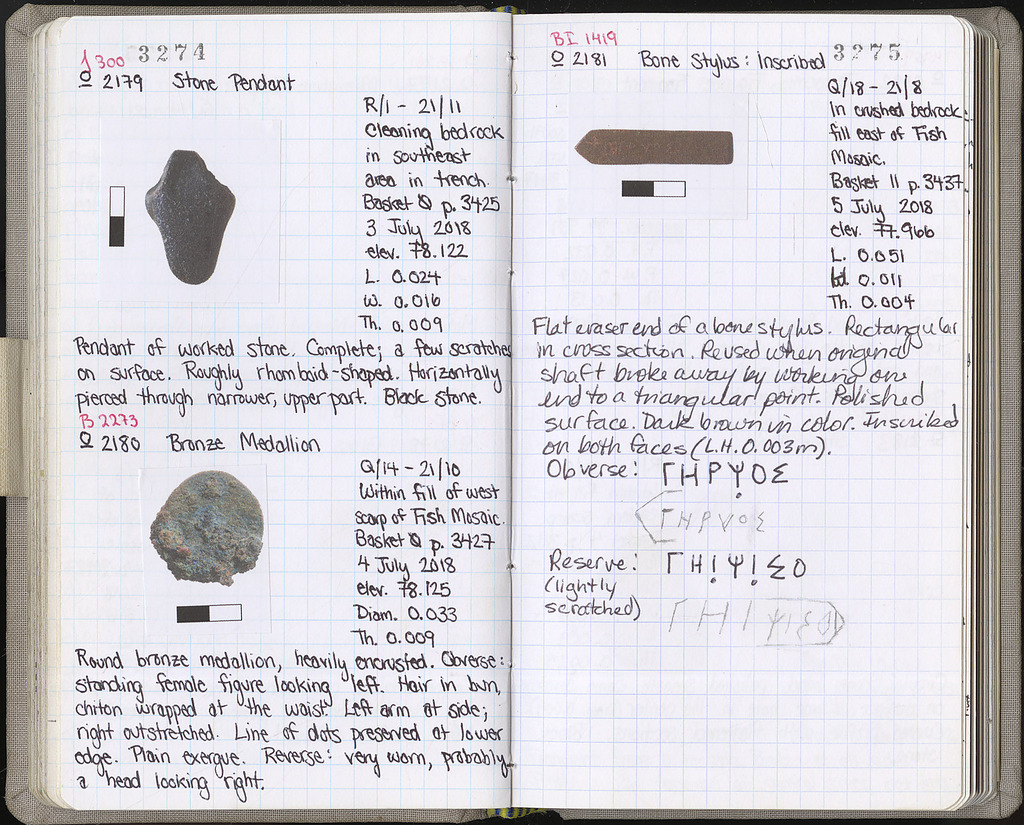 J 300 3274
O 2179 Stone Pendant
R/1 - 21/11
Cleaning bedrock
in southeast
area in trench.
Basket p. 3425
3 July 2018
elev. 78.122
L. 0.024
W. 0.016
Th. 0.009
Pendant of worked stone. Complete; a few scratches
on surface. Roughly rhomboid-shaped. Horizontally
pierced through narrower, upper part. Black stone.
B 2273
O 2180 Bronze Medallion
Q/14 - 21/10
Within fill of west
scarp of Fish Mosaic.
Basket p. 3427
4 July 2018
elev. 78.125
Diam. 0.033
Th. 0.009
Round bronze medallion, heavily encrusted. Obverse:
standing female figure looking left. Hair in bun,
chiton wrapped at the waist. Left arm at side;
right outstretched. Line of dots preserved at lower
edge. Plain exergue. Reverse: very worn, probably
a head looking right.
BI 1419
O 2181 Bone Stylus: Inscribed 3275
Q/18 - 21/8
In crushed bedrock
fill east of Fish
Mosaic.
Basket 11 p. 3437
5 July 2018
elev. 77.966
L. 0.051
W. 0.011
Th. 0.004
Flat eraser end of a bone stylus. Rectangular
in cross section. Reused when original
shaft broke away by working one
end to a triangular point. Polished
surface. Dark brown in color. Inscribed
on both faces (L.H. 0.003m).
Obverse: ΓΗΡΨ̣ΟΣ
ΓΗΡVΟΣ
Reserve: ΓΗΙ̣ΨΙ̣ΣΟ
(lightly
scratched) ΓΗΙΨΙΣΟ